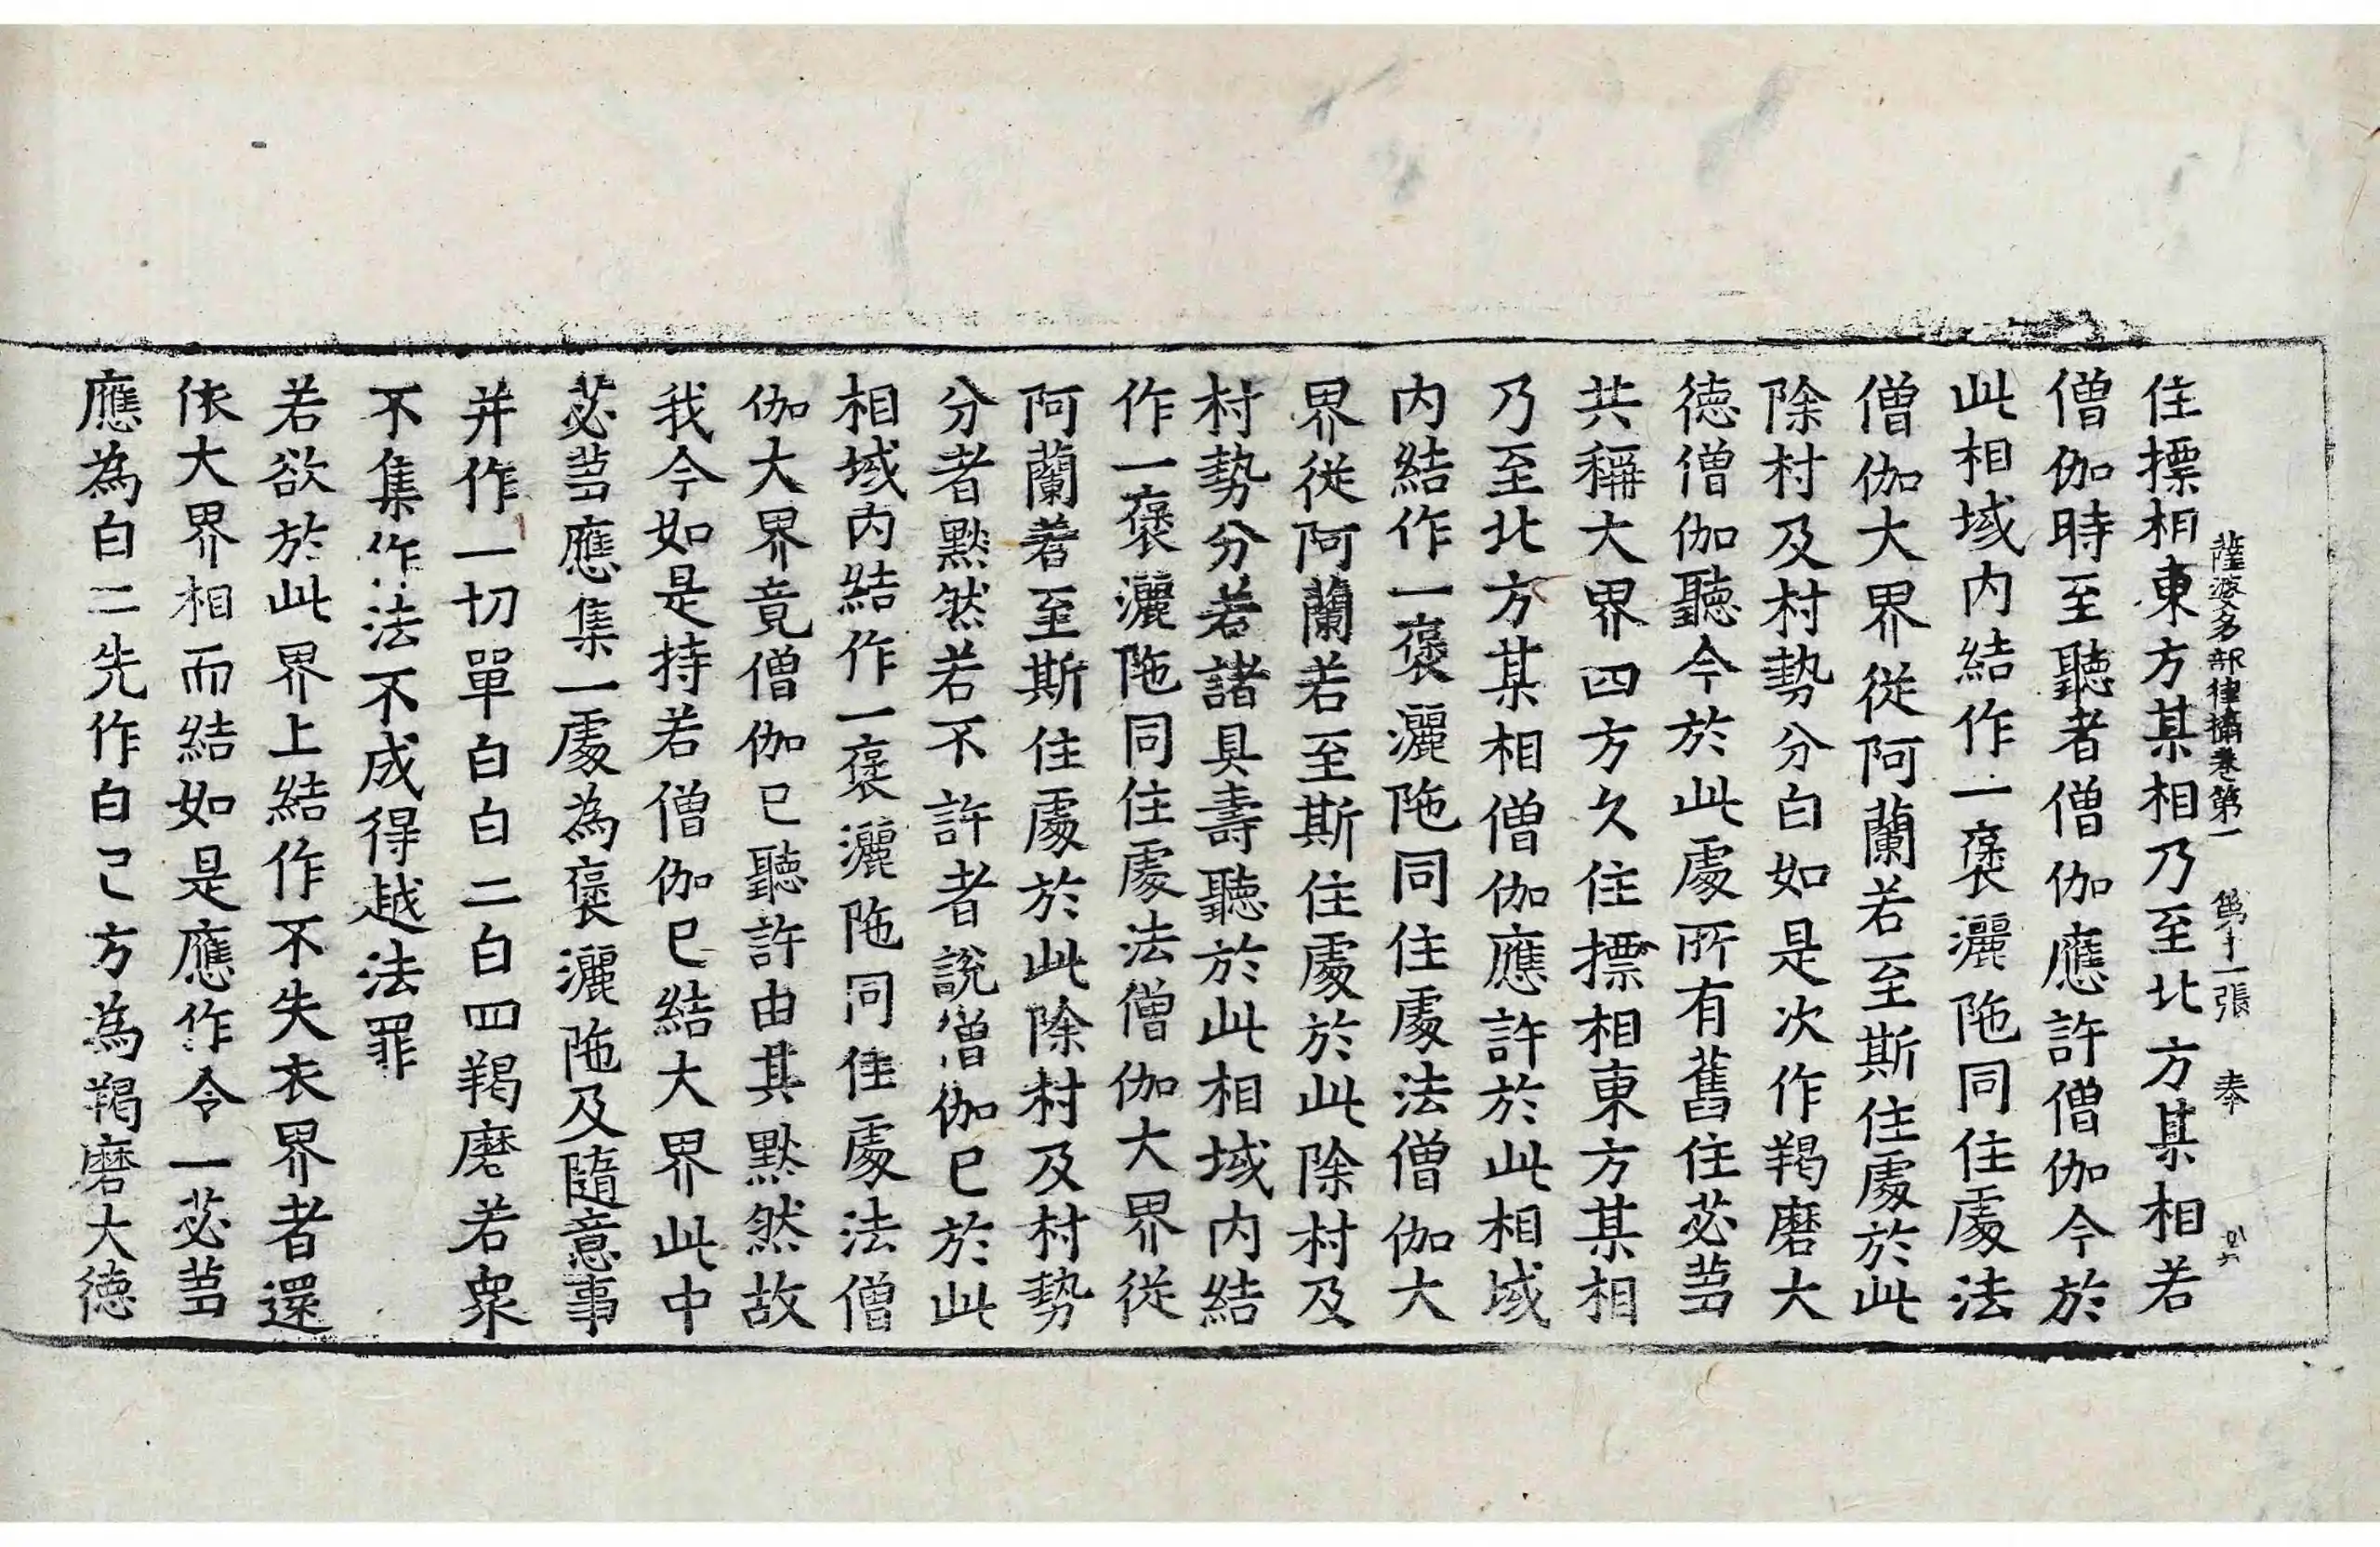 薩婆多部律攝卷第一　第十一張　奉
住摽相東方某相乃至北方某相若
僧伽時至聽者僧伽應許僧伽今於
此相域内結作一褒灑陁同住處法
僧伽大界從阿蘭若至斯住處於此
除村及村勢分白如是次作羯磨大
德僧伽聽今於此處所有舊住苾芻
共稱大界四方久住摽相東方某相
乃至北方某相僧伽應許於此相域
内結作一褒灑陁同住處法僧伽大
界從阿蘭若至斯住處於此除村及
村勢分若諸具壽聽於此相域内結
作一褒灑陁同住處法僧伽大界從
阿蘭若至斯住處於此除村及村勢
分者默然若不許者說僧伽已於此
相域内結作一褒灑陁同住處法僧
伽大界竟僧伽已聽許由其默然故
我今如是持若僧伽已結大界此中
苾芻應集一處為褒灑陁及隨意事
并作一切單白白二白四羯磨若衆
不集作法不成得越法罪
若欲於此界上結作不失衣界者還
依大界相而結如是應作令一苾芻
應為白二先作白已方為羯磨大德